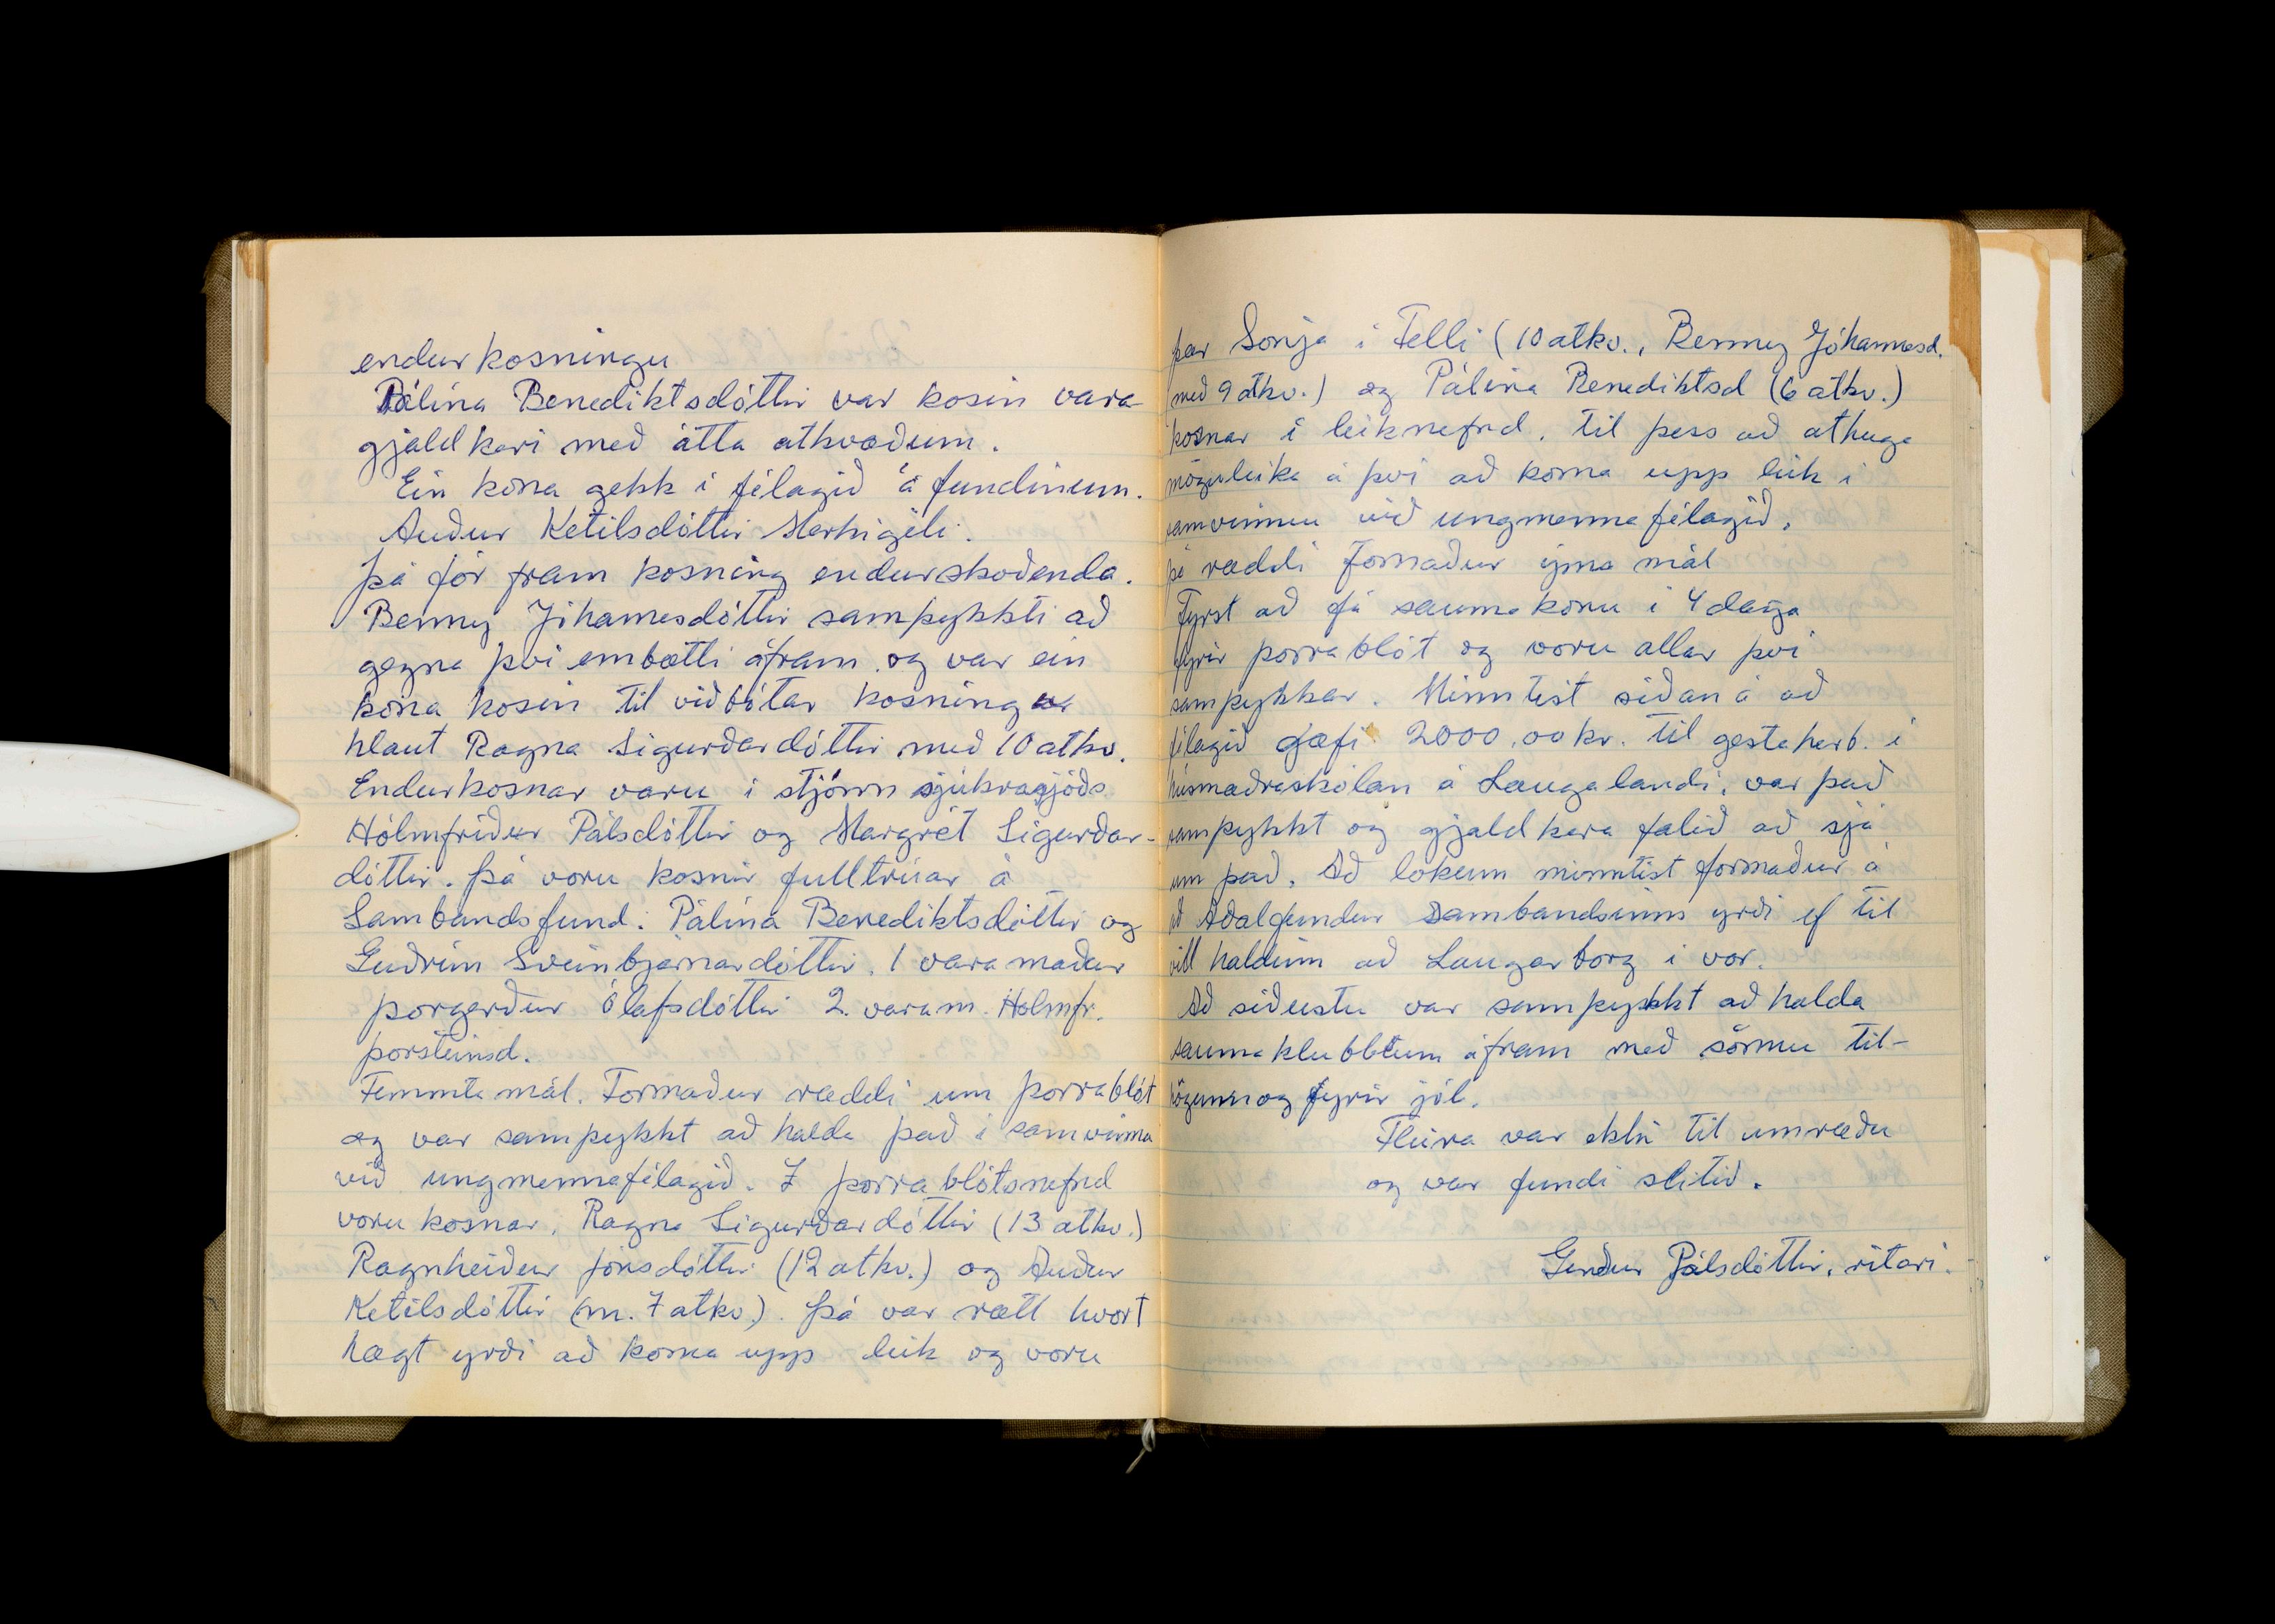 endurkosningu
Pálína Benediktsdóttir var kosin vara
gjaldkeri með átta atkvæðum.
Ein kona gekk í félagið á fundinum.
Auður Ketilsdóttir Merkigili.
Þá fór fram kosning endurskoðenda.
Benney Jóhannesdóttir samþykkti að
gegna því embætti áfram og var ein
kona kosin til viðbótar kosningu
hlaut Ragna Sigurðardóttir með 10 atkv.
Endurkosnar voru í stjórn sjúkrasjóðs
Hólmfríður Pálsdóttir og Margrét Sigurðar-
dóttir. Þá voru kosnir fulltrúar á
Sambandsfund: Pálína Benediktsdóttir og
Guðrún Sveinbjarnardóttir. 1 vara maður
Þorgerður Ólafsdóttir 2. varam. Hólmfr.
Þorsteinsd.
Femmta mál. Formaður ræddi um þorrablót
og var samþykkt að halda það í samvinnu
við ungmennafélagið. Í þorrablótsnefnd
voru kosnar, Ragna Sigurðardóttir (13 atkv.)
Ragnheiður Jónsdóttir (12 atkv.) og Auður
Ketilsdóttir (m. 7 atkv.). Þá var rætt hvort
hægt yrði að koma upp leik og voru
þær Sonja í Felli (10 atkv., Benney Jóhannesd.
með 9 atkv.) og Pálína Benediktsd (6 atkv.)
kosnar í leiknefnd, til þess að athuga
möguleika á því að koma upp leik í
samvinnu við ungmennafélagið.
Þá ræddi formaður ýms mál
Fyrst að fá saumakonu í 4 daga
fyrir þorrablót og voru allar því
samþykkar. Minntist síðan á að
félagið gæfi 2000,00 kr. til gestaherb. í
húsmæðraskólan á Laugalandi, var það
samþykkt og gjaldkera falið að sjá
um það. Að lokum minntist formaður á
að Aðalfundur Sambandsins yrði ef til
vill haldinn að Laugarborg í vor.
Að síðustu var samþykkt að halda
saumaklúbbum áfram með sömu til-
högunn og fyrir jól.
Fleira var ekki til umræðu
og var fundi slitið.
Gerður Pálsdóttir, ritari.